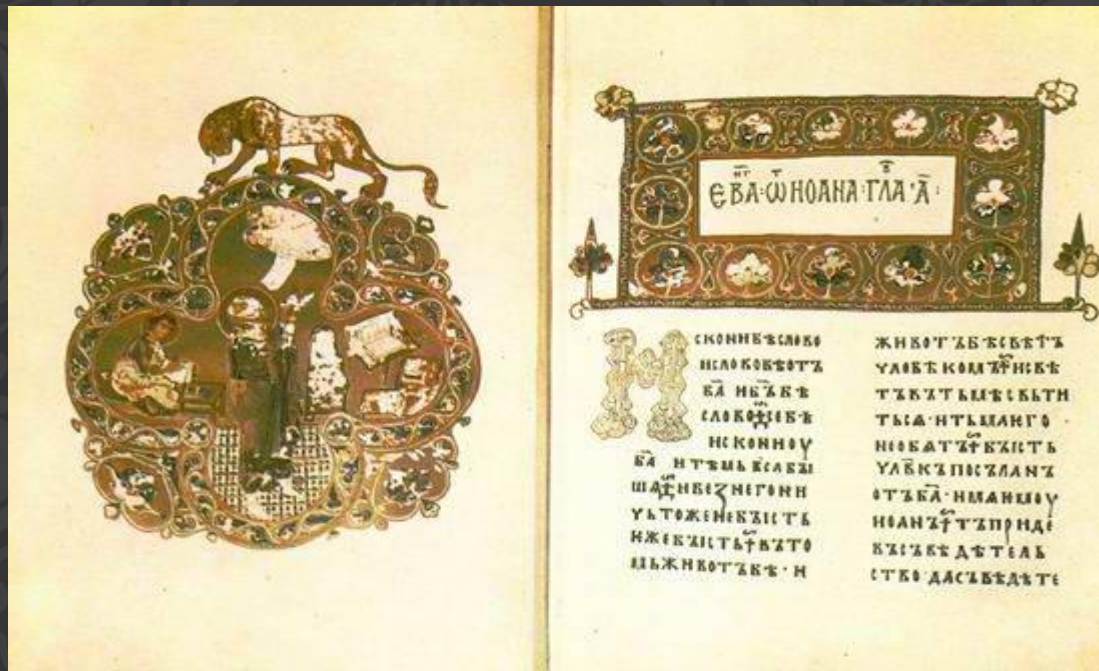 ЕВА҃·Ѿ ИОАНА·ГЛА·А҃:
ИСКОНИ БѢ СЛОВО
И СЛОВО БѢ ОТЪ
Б҃А И Б҃Ъ БѢ
СЛОВО СЕ БѢ
ИСКОНИ ОУ
Б҃А И ТѢМЬ ВСѦ БЫ
ШѦ И БЕЗ НЕГО НИ
ЧЬТОЖЕ НЕ БЫСТЬ
ЕЖЕ БЫСТЬ ВЪ ТО
МЬ ЖИВОТЪ БѢ · И
ЖИВОТЪ БѢ СВѢТЪ
ЧЛОВѢКОМЪ И СВѢ
ТЪ ВЪ ТЬМѢ СВЬТИ
ТЬСѦ · И ТЬМА ЕГО
НЕ ОБѦТЪ БЫСТЬ
ЧЛ҃ВКЪ ПОСЪЛАНЪ
ОТЪ Б҃А · ИМѦ ЕМОУ
ИОАНЪ ТЪ ПРИДЕ
ВЪ СЪВѢДѢТЕЛЬ
СТВО ДА СЪВѢДѢТЕ